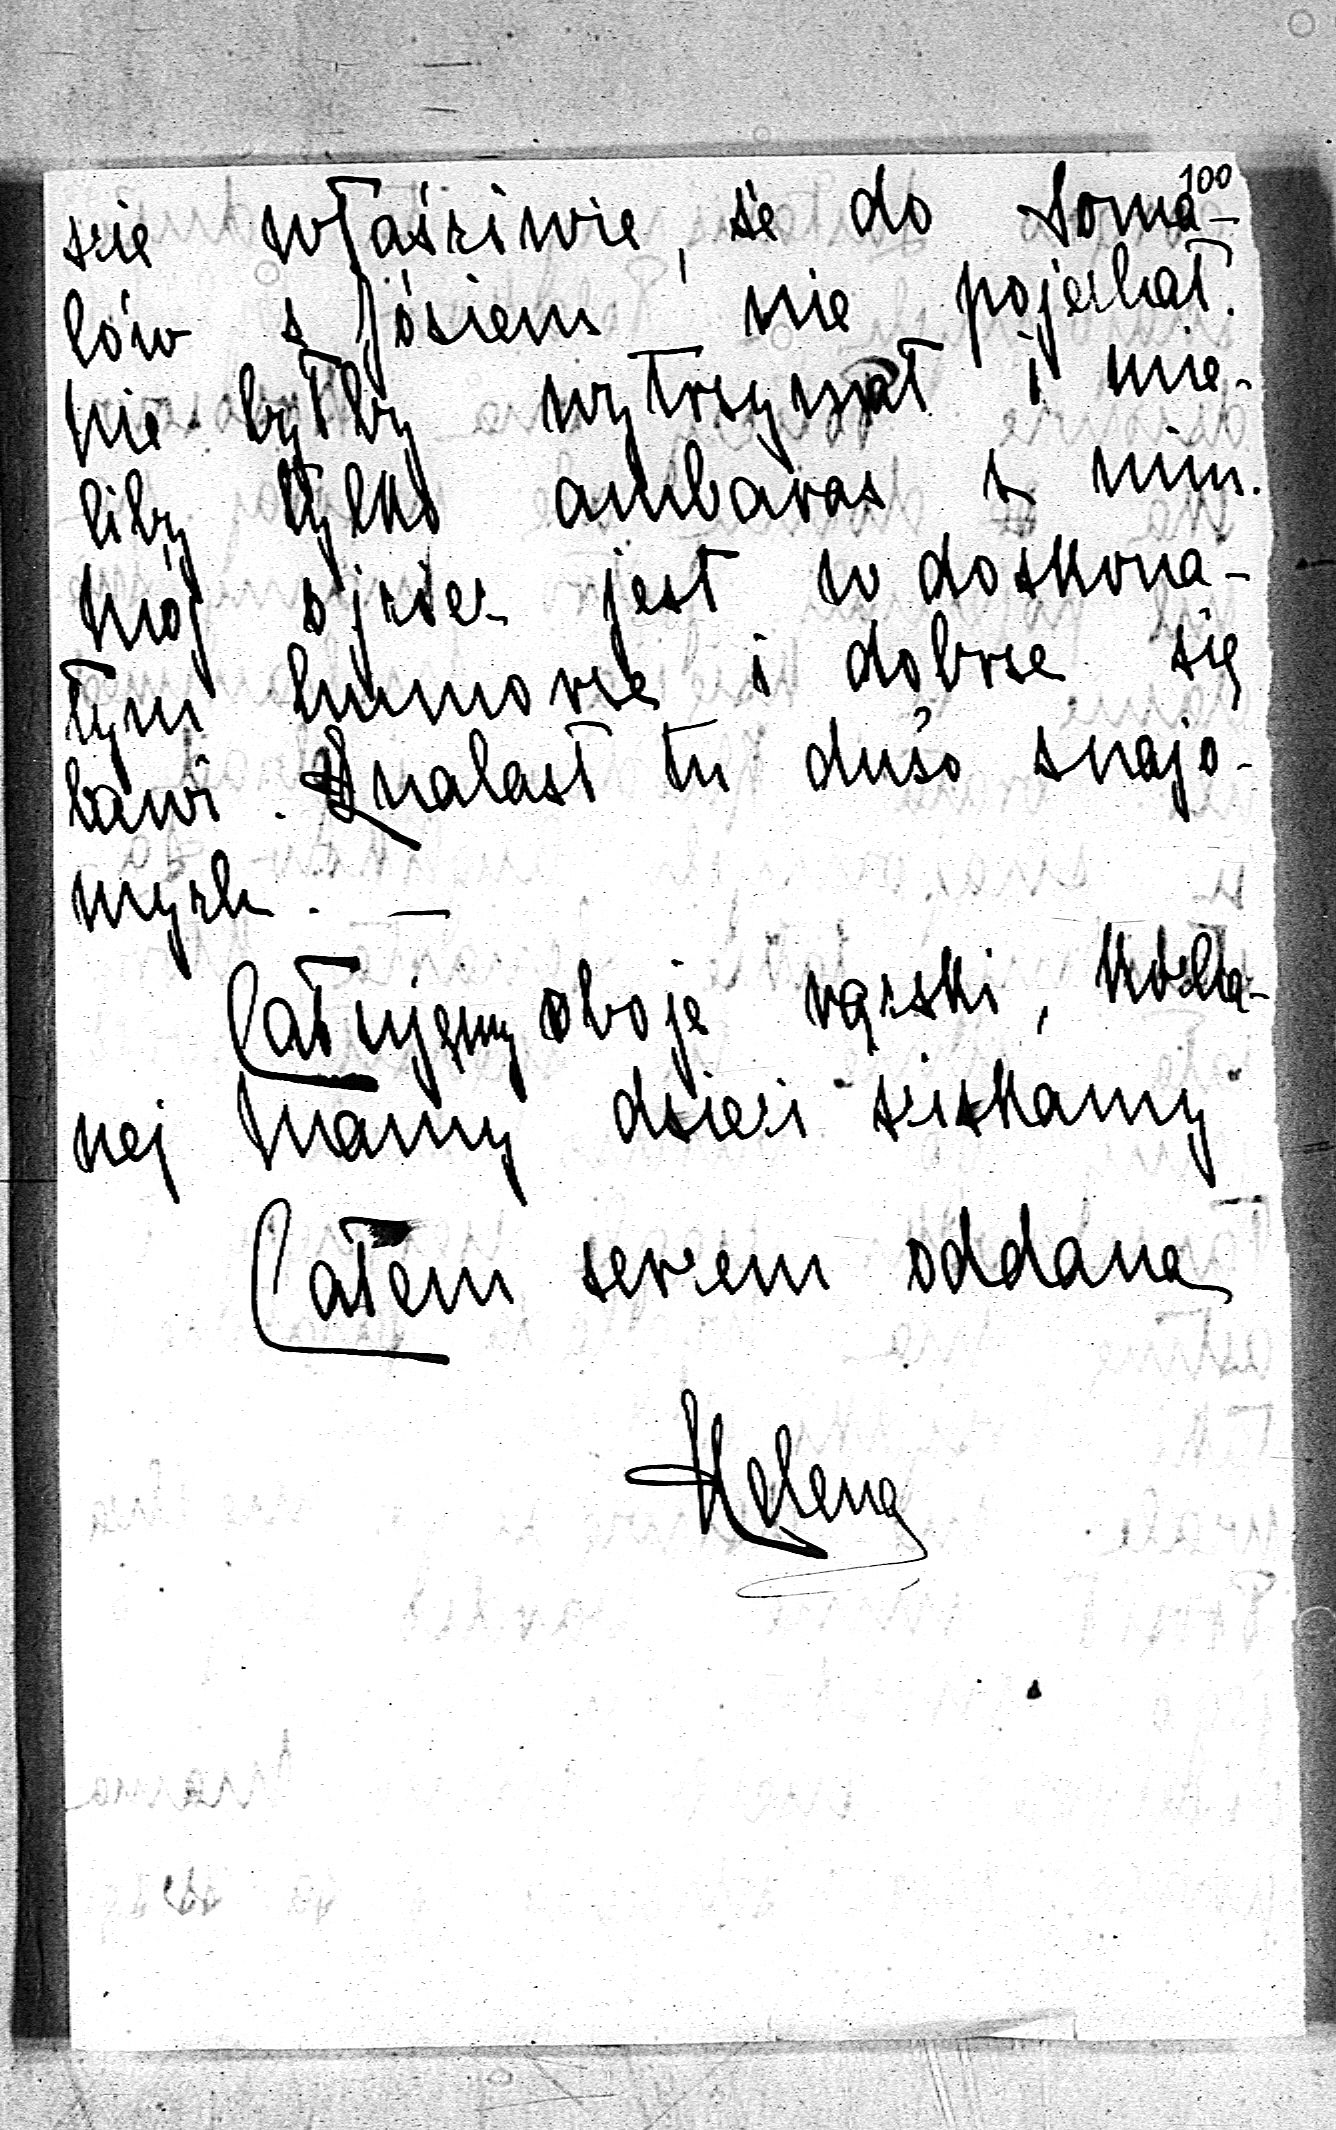 100
ście właściwie, że do Soma-
lów z Józiem nie pojechał.
nie byłby wytrzymał i mie-
liby tylko ambaras z nim.
Mój ojciec jest w doskona-
łym humorze i dobrze się
bawi. Znalazł tu dużo znajo-
mych. —
Całujemy oboje rączki, kocha-
nej Mamy dzieci ściskamy
Całem sercem oddana
Helena